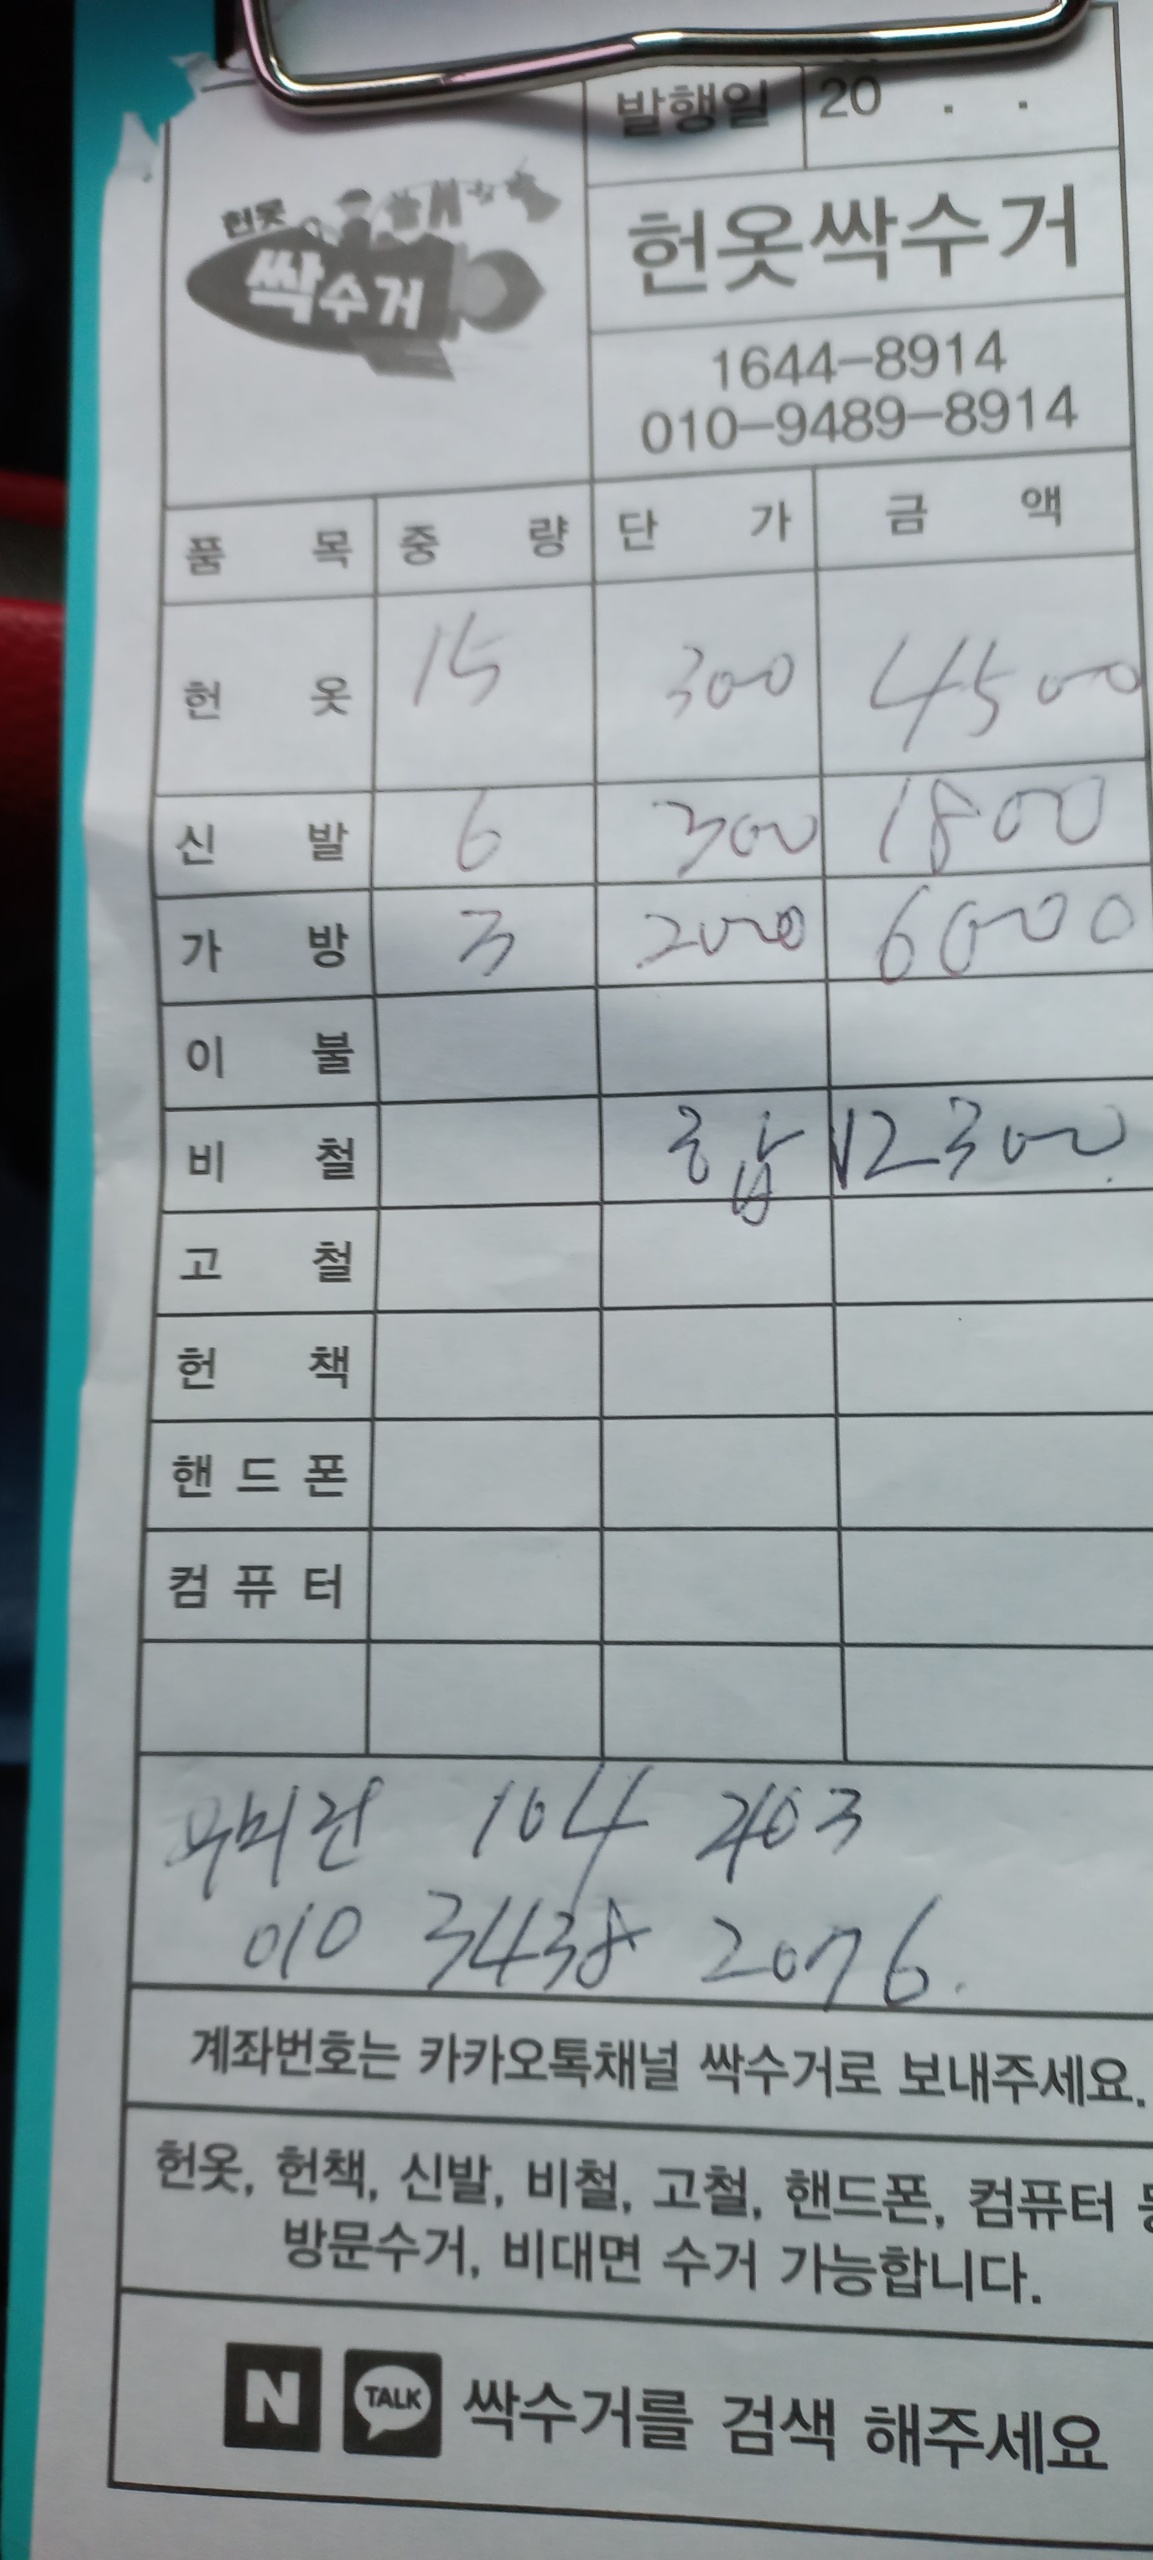 발행일 20 . .
헌옷
싹수거
헌옷싹수거
1644-8914
010-9489-8914
품 목 중 량 단 가 금 액
헌 옷 15 300 4500
신 발 6 300 1800
가 방 3 2000 6000
이 불
비 철 합 12300
고 철
헌 책
핸 드 폰
컴 퓨 터
우미린 104 2403
010 3438 2076.
계좌번호는 카카오톡채널 싹수거로 보내주세요.
헌옷, 헌책, 신발, 비철, 고철, 핸드폰, 컴퓨터
방문수거, 비대면 수거 가능합니다.
N TALK 싹수거를 검색 해주세요